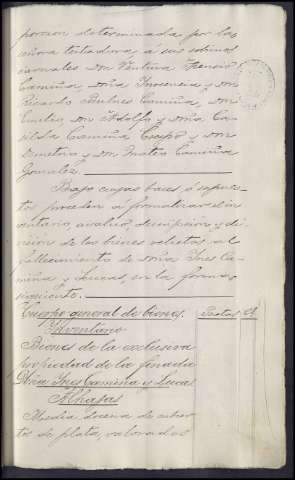 porcion determinada por la
señora testadora, a sus sobrinos
carnales Don Ventura
Camiña, Doña Inocencia y Don
Ricardo Bulnes Camiña, Don
Emilio, Don Adolfo y Doña Ca-
silda Camiña Crespo y Don
Demetrio y Don Mateo Camiña
Gonzalez.
Bajo cuyas bases ó supues-
tos proceden á formalizar el in-
ventario, avaluo, descripcion y di-
vision de los bienes relictos al
fallecimiento de Doña Ines Ca-
miña y Lucas, en la forma
siguiente.
Cuerpo general de bienes. Pesetas Cs
Inventario
Bienes de la exclusiva
propiedad de la finada
Doña Ines Camiña y Lucas
Alhajas
Media docena de cubier-
tos de plata, valorados